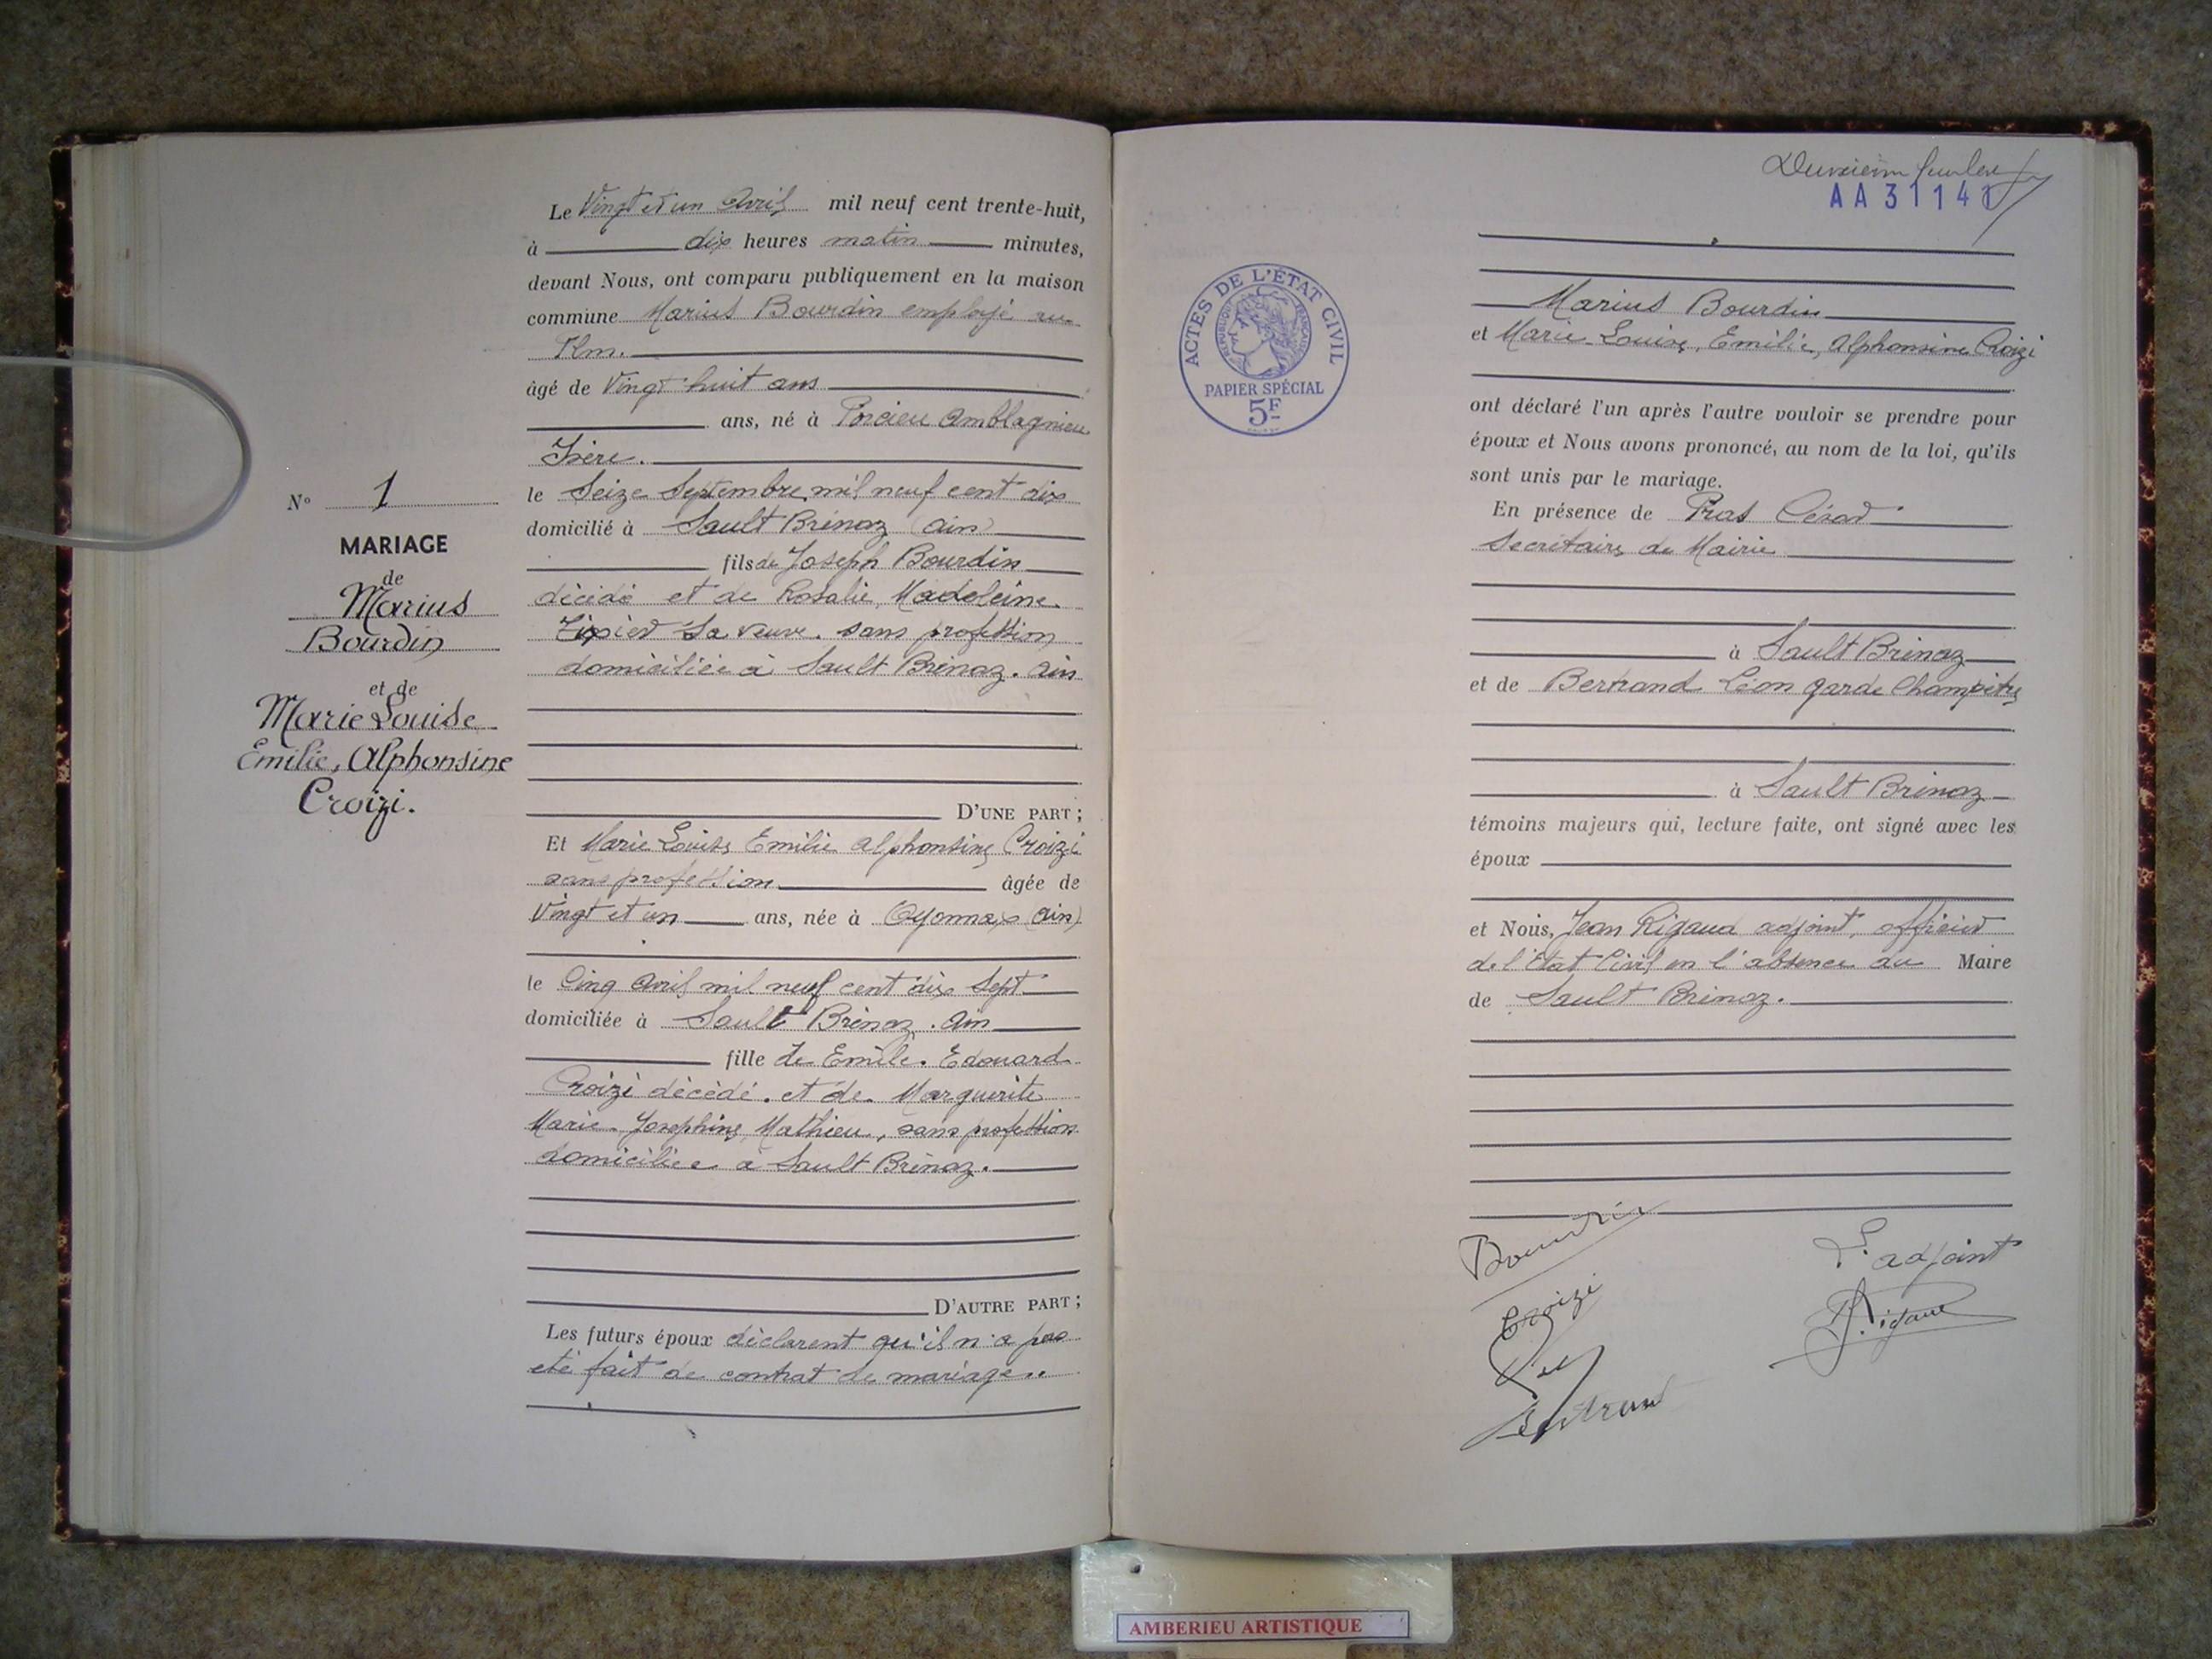 Le Vingt et un Avril mil neuf cent trente-huit,
à dix heures matin minutes,
devant Nous, ont comparu publiquement en la maison
commune Marius Bourdin employé au
Plm.
âgé de Vingt huit ans
ans, né à Porcieu Amblagnieu
Isère.
le Seize Septembre mil neuf cent dix
domicilié à Sault Brénaz (Ain)
fils de Joseph Bourdin
décédé et de Rosalie, Madeleine
Sa veuve. sans profession
domiciliée à Sault Brénaz. Ain
D'UNE PART ;
Et Marie Louise Emilie Alphonsine Croizi
sans profession âgée de
Vingt et un ans, née à Oyonnax (Ain)
le Cinq Avril mil neuf cent dix sept
domiciliée à Sault Brénaz. Ain
fille de Emile. Edouard
Croizi décédé. et de Marguerite
Marie. Joséphine Mathieu, sans profession
domiciliée à Sault Brénaz.
D'AUTRE PART ;
Les futurs époux déclarent qu'il n'a pas
été fait de contrat de mariage..
N° 1
MARIAGE
de
Marius
Bourdin
et de
Marie Louise
Emilie, Alphonsine
Croizi.
Deuxième
AA 31141
ACTES DE L'ÉTAT CIVIL
RÉPUBLIQUE FRANÇAISE
PAPIER SPÉCIAL
5F
Marius Bourdin
et Marie-Louise, Emilie, Alphonsine Croizi
ont déclaré l'un après l'autre vouloir se prendre pour
époux et Nous avons prononcé, au nom de la loi, qu'ils
sont unis par le mariage.
En présence de Pras César
Secrétaire de Mairie
à Sault Brénaz
et de Bertrand Léon garde Champêtre
à Sault Brénaz
témoins majeurs qui, lecture faite, ont signé avec les
époux
et Nous, Jean Rigaud adjoint, officier
de l'Etat Civil en l'absence du Maire
de Sault Brénaz.
Bourdin
Croizi
Bertrand
L'adjoint
Rigaud
AMBERIEU ARTISTIQUE